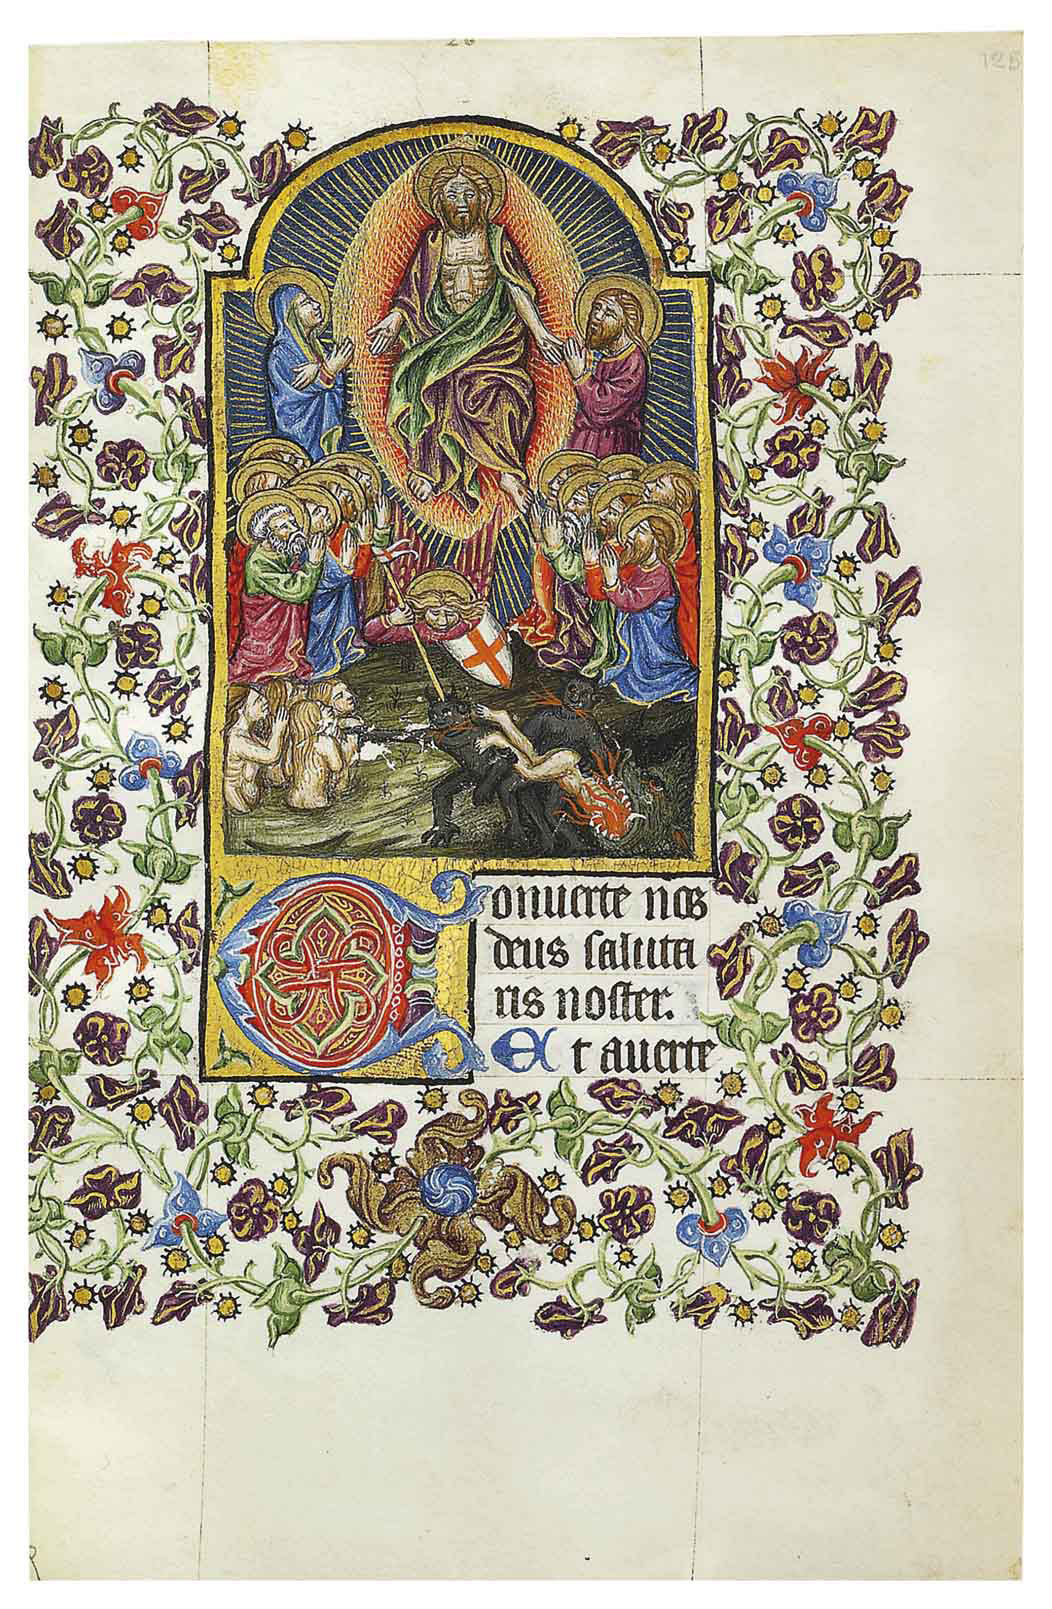 Conuerte nos
deus saluta
ris noster.
Et auerte